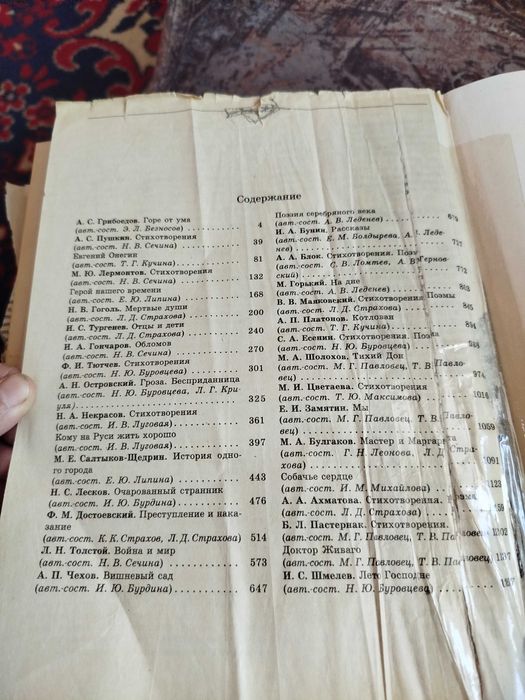 Содержание
А. С. Грибоедов. Горе от ума
(авт.-сост. Э. Л. Безносов) 4
А. С. Пушкин. Стихотворения
(авт.-сост. Н. В. Сечина) 39
Евгений Онегин
(авт.-сост. Т. Г. Кучина) 81
М. Ю. Лермонтов. Стихотворения
(авт.-сост. Н. В. Сечина) 132
Герой нашего времени
(авт.-сост. Е. Ю. Липина) 168
Н. В. Гоголь. Мертвые души
(авт.-сост. Л. Д. Страхова) 200
И. С. Тургенев. Отцы и дети
(авт.-сост. Л. Д. Страхова) 240
И. А. Гончаров. Обломов
(авт.-сост. Н. В. Сечина) 270
Ф. И. Тютчев. Стихотворения
(авт.-сост. Н. Ю. Буровцева) 301
А. Н. Островский. Гроза. Бесприданница
(авт.-сост. Н. Ю. Буровцева, Л. Г. Кри-
уля) 325
Н. А. Некрасов. Стихотворения
(авт.-сост. И. В. Луговая) 361
Кому на Руси жить хорошо
(авт.-сост. И. В. Луговая) 397
М. Е. Салтыков-Щедрин. История одно-
го города
(авт.-сост. Е. Ю. Липина) 443
Н. С. Лесков. Очарованный странник
(авт.-сост. И. Ю. Бурдина) 476
Ф. М. Достоевский. Преступление и нака-
зание
(авт.-сост. К. К. Страхов, Л. Д. Страхова) 514
Л. Н. Толстой. Война и мир
(авт.-сост. Н. В. Сечина) 573
А. П. Чехов. Вишневый сад
(авт.-сост. И. Ю. Бурдина) 647
Поэзия серебряного века
(авт.-сост. А. В. Леденев)
И. А. Бунин. Рассказы
(авт.-сост. Е. М. Болдырева, А. В. Леде-
нев)
А. А. Блок. Стихотворения.
(авт.-сост. С. В. Ломтев, А. В.
М. Горький. На дне
(авт.-сост. А. В. Леденев)
В. В. Маяковский. Стихотворения Поэмы
(авт.-сост. Л. Д. Страхова)
А. П. Платонов. Котлован
(авт.-сост. Т. Г. Кучина) 894
С. А. Есенин. Стихотворения.
(авт.-сост. Н. Ю. Буровцева)
М. А. Шолохов. Тихий Дон
(авт.-сост. М. Г. Павловец, Т. В. Павло-
вец) 974
М. И. Цветаева. Стихотворения
(авт.-сост. Т. Ю. Максимова) 1016
Е. И. Замятин. Мы
(авт.-сост. М. Г. Павловец, Т. В. Павло-
вец) 1059
М. А. Булгаков. Мастер и Маргарита
(авт.-сост. Г. Н. Леонова, Л. Д. Стра-
хова) 1091
Собачье сердце
(авт.-сост. И. М. Михайлова)
А. А. Ахматова. Стихотворения.
(авт.-сост. Л. Д. Страхова)
Б. Л. Пастернак. Стихотворения.
(авт.-сост. М. Г. Павловец, Т. В. Павловец)
Доктор Живаго
(авт.-сост. М. Г. Павловец, Т. В. Павловец)
И. С. Шмелев. Лето Господне
(авт.-сост. Н. Ю. Буровцева)